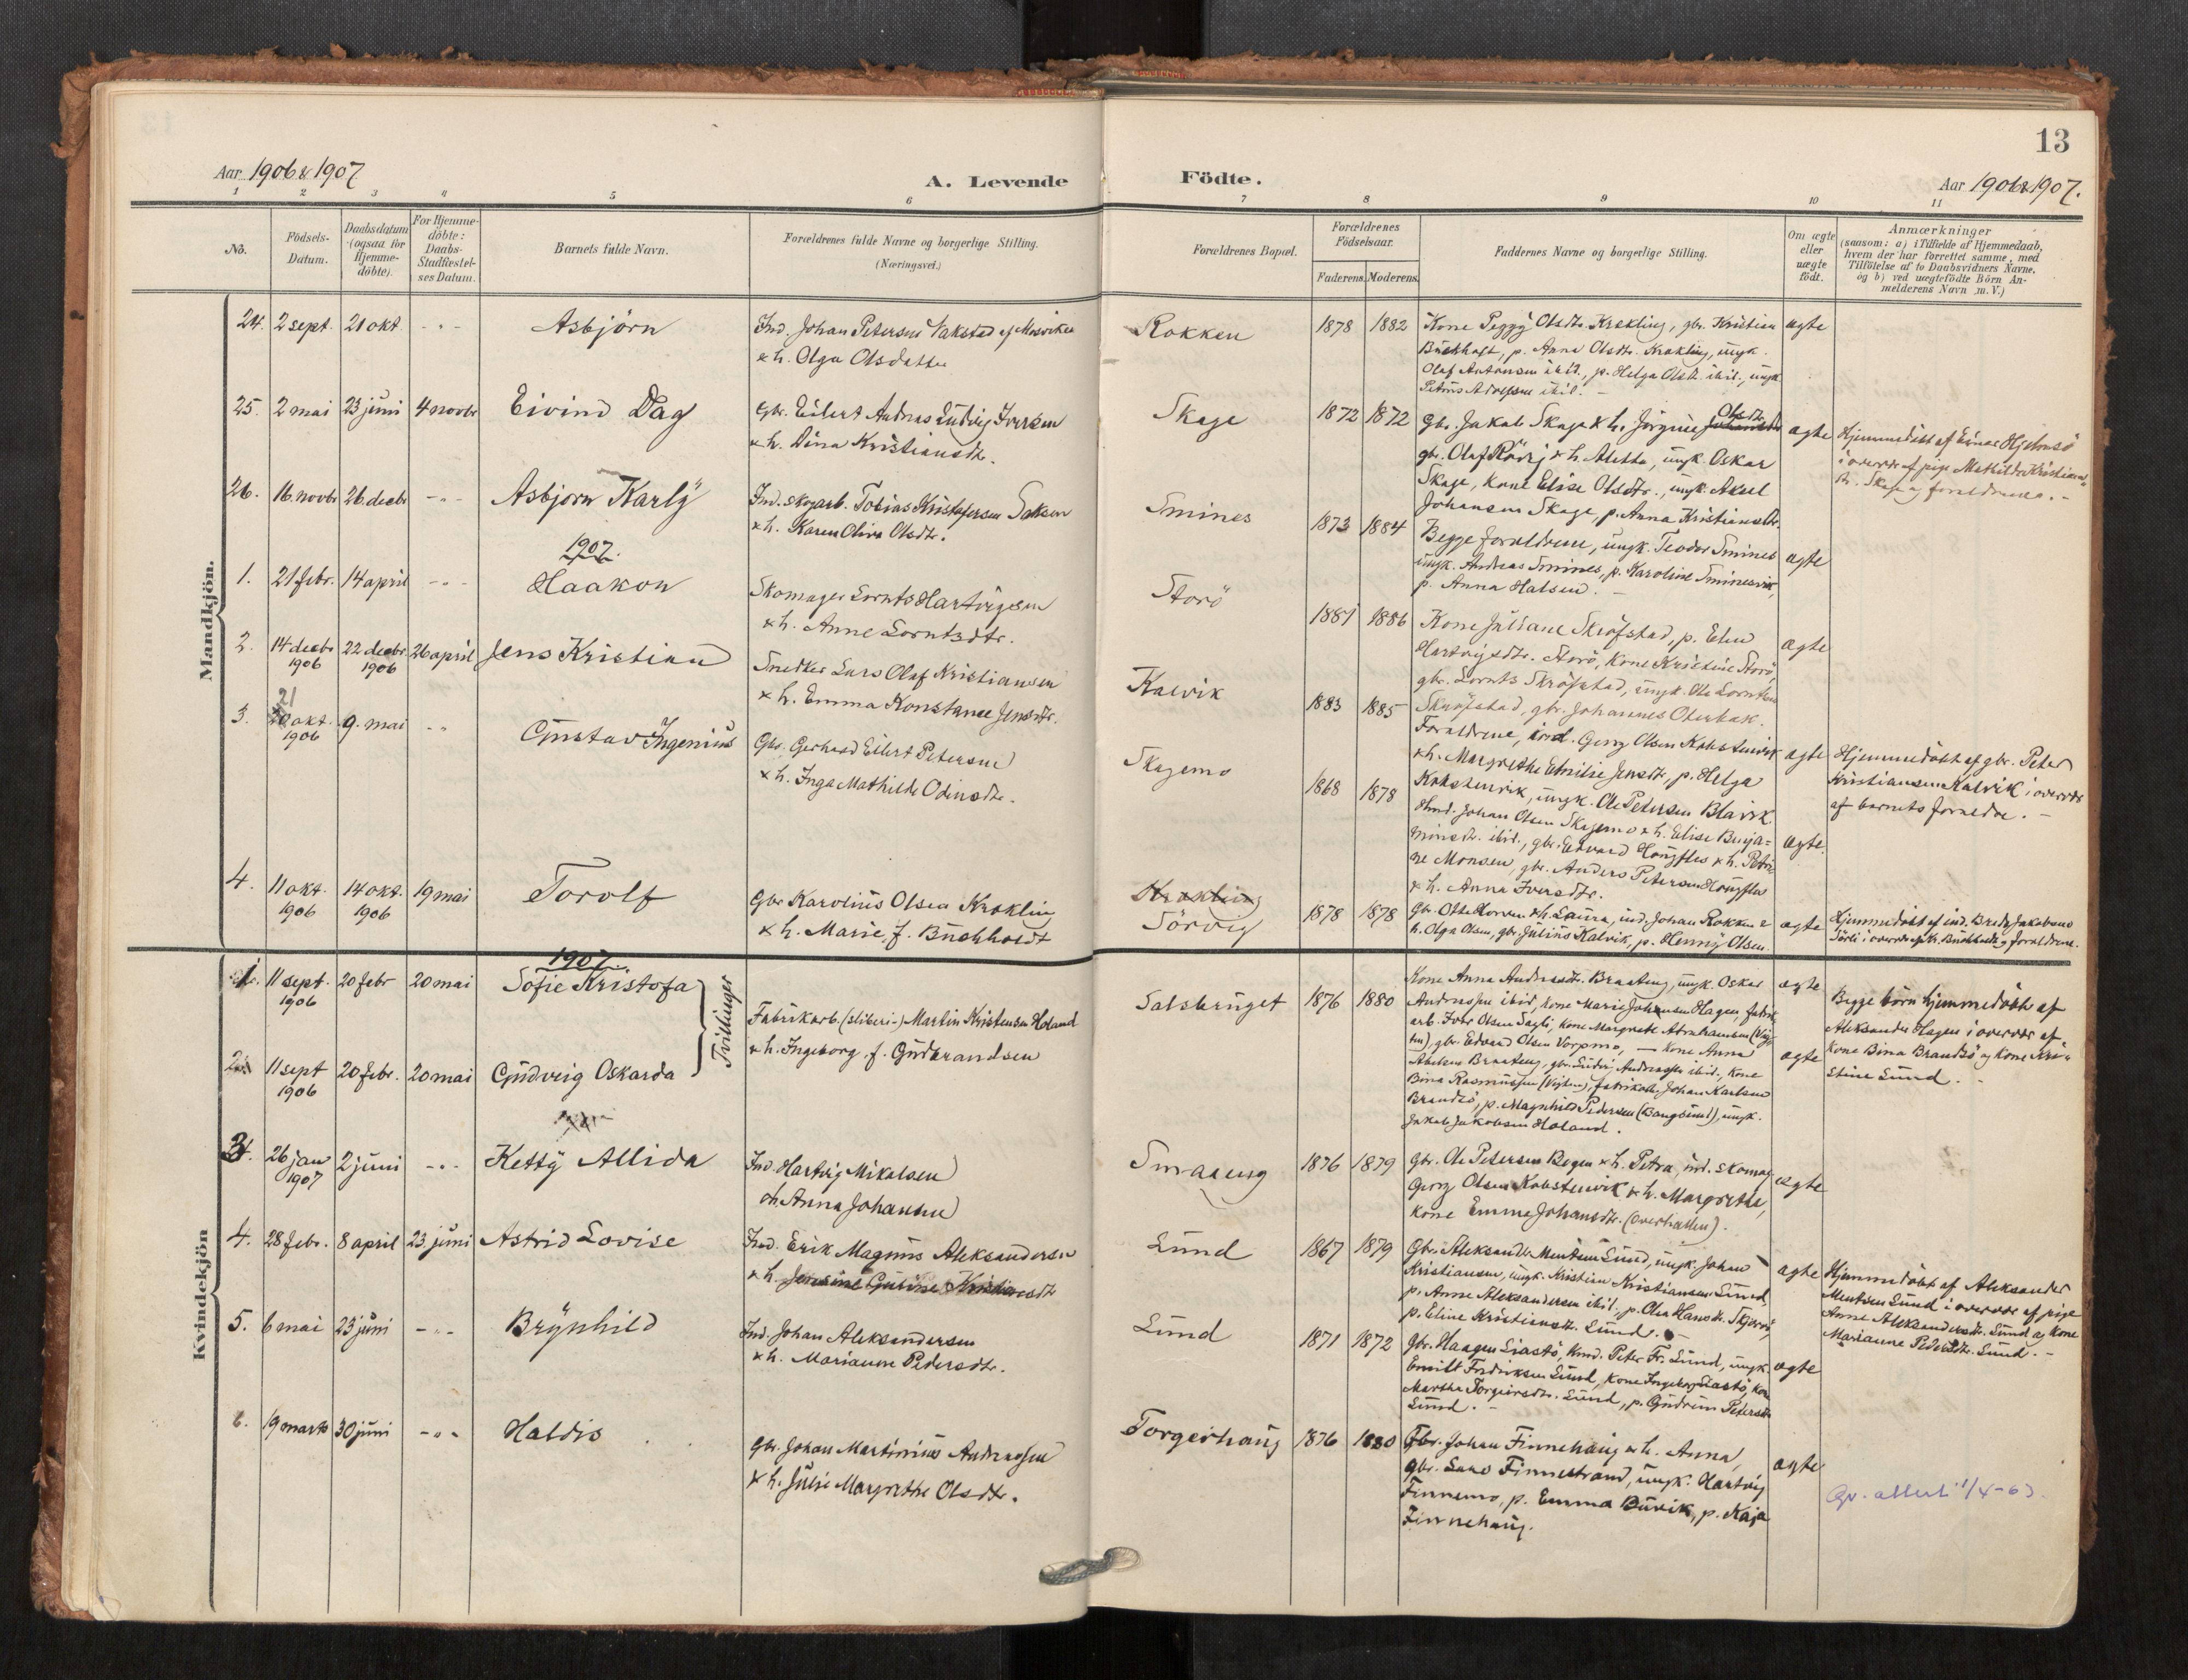 13
Aar 1906 & 1907
A. Levende
Födte.
Aar 1906 & 1907.
1 2 3 4 5 6 7 8 9 10 11
No.
Födsels-
Datum.
Daabsdatum
(ogsaa for
Hjemme-
döbte).
For Hjemme-
döbte:
Daabs-
Stadfæstel-
ses Datum.
Barnets fulde Navn.
Forældrenes fulde Navne og borgerlige Stilling.
(Næringsvei.)
Forældrenes Bopæl.
Forældrenes
Födselsaar.
Faderens. Moderens.
Faddernes Navne og borgerlige Stilling.
Om ægte
eller
uægte
födt.
Anmærkninger
(saasom: a) i Tilfælde af Hjemmedaab,
hvem der har forrettet samme, med
Tilföielse af to Daabsvidners Navne,
og b) ved uægtefödte Börn An-
melderens Navn m. V.)
Mandkjön.
24. 2 sept. 21 okt - " - Asbjörn
Ind. Johan Petersen Vakstad af
& h. Olga Olsdatter
Rokken 1878 1882
Kone Peggy Olsdtr. Krekling, gbr. Kristian
Buchholt, p. Anna Olsdtr. Krekling, ungk.
Olaf Antonsen ibid., p. Helga Olsdtr. ibid., ungk.
Petrus Adolfsen ibid. -
ægte
25. 2 mai 23 juni 4 novbr Eivind Dag
Gbr. Eilert Andreas Ludvig Iversen
& h. Dina Kristiansdtr.
Skage 1872 1872
Gbr. Jakob Skage & h. Jörgine Olsdtr
gbr. Olaf Rödvig & h. Alette, ungk. Oskar
Skage, kone Elise Olsdtr., ungk. Aksel
Johansen Skage, p. Anna Kristiansdtr.
ægte
Hjemmedöbt af Einar Hjelmsö
i overvær af pige Mathilde Kristians-
dtr. Skage og forældrene. -
26. 16 novbr 26 decbr - " - Asbjorn Karly
Ind. skogarb. Tobias Kristofersen Saksen
& h. Karen Oliva Olsdtr.
Smines 1873 1884
Begge forældrene, ungk. Teodor Smines
ungk. Andreas Smines, p. Karoline Sminesvik,
p. Anna Halsen. -
ægte
1907.
1. 21 febr. 14 april - " - Haakon
Skomager Lornts Hartvigsen
& h. Anne Lorntsdtr.
Storö 1881 1886
Kone Juliane Skröfstad, p. Elen
Hartvigsdtr. Storö, kone Kristine Storö,
gbr. Lornts Skröfstad, ungk. Ole Lorntsen
Skröfstad, gbr. Johannes Oterbak.
ægte
2. 14 decbr 1906 22 decbr 1906 26 april Jens Kristian
Snedker Lars Olaf Kristiansen
& h. Emma Konstance Jensdtr.
Kalvik 1883 1885
Forældrene, ind. Georg Olsen Kobstenvik
& h. Margrethe Emilie Jensdtr, p. Helga
Kobstenvik, ungk. Ole Petersen Blavik.
ægte
Hjemmedöbt af gbr. Peter
Kristiansen Kalvik i overvær
af barnets forældre. -
3. 21 okt. 1906 9. mai - " - Gustav Ingenius
Gbr. Gerhard Eilert Petersen
& h. Inga Mathilde Odinsdtr.
Skagemo 1868 1878
Hmd. Johan Olsen Skagemo & h. Elise Benja-
minsdtr. ibid., gbr. Edvard Haugfles & h. Petri-
ne Monsen, gbr. Anders Petersen Haugfles
& h. Anna Iversdtr.
ægte.
4. 11 okt. 1906 14 okt. 1906 19 mai Torolf
Gbr Karolius Olsen Kreklin
& h. Marie, f. Buchholdt
Krekling
Sörvig 1878 1878
Gbr. Otte Horven & h. Laura, ind. Johan Rokken &
h. Olga Olsen, gbr. Julius Kalvik, p. Henny Olsen.
ægte
Hjemmedöbt af ind. Bredo Jakobsen
Sörli i overvær af Kr. Buchholdt og forældrene.
Kvindekjön
1907.
1. 11 sept. 1906 20 febr 20 mai Sofie Kristofa
2. 11 sept 1906 20 febr. 20 mai Gudveig Oskarda
Tvillinger
Fabrikarb. (sliberi-) Martin Kristensen Holand
& h. Ingeborg, f. Gudbrandsen
Salsbruget 1876 1880
Kone Anna Andreasdtr. Braateng, ungk. Oskar
Andreassen ibid, kone Marie Johansen Hagen, fabrik-
arb. Iver Olsen Sagli, kone Margrete Abrahamsen (Vig-
ten), gbr. Edvard Olsen Vorpmo, — Kone Anna
Abelsen Braateng, gbr. Ludvig Andreassen ibid., kone
Bina Rasmussen (Vigten), fabrikarb. Johan Karlsen
Brandsö, p. Magnhild Pedersen (Bangsund), ungk.
Jakob Jakobsen Holand.
ægte
ægte
Begge börn hjemmedöbte af
Aleksander Hagen i overvær af
kone Bina Brandsö og kone Kri-
stine Lund. -
3. 26 jan 1907 2 juni - " - Ketty Allida
Ind. Hartvig Mikalsen
& h. Anna Johansen
Smaaeng 1876 1879
Gbr. Ole Petersen Bogen & h. Petra, ind. skomag.
Georg Olsen Kobstenvik & h. Margrethe,
kone Emma Johansdtr. (Overhallen).
ægte
4. 28 febr. 8 april 23 juni Astrid Lovise
Ind. Erik Magnus Aleksandersen
& h. Jensine Gurine Kristiansdtr
Lund 1867 1879
Gbr. Aleksander Mentsen Lund, ungk. Johan
Kristiansen, ungk. Kristian Kristiansen Lund,
p. Anne Aleksandersen ibid., p. Olea Hansdtr.
p. Eline Kristiansdtr. Lund.
ægte
Hjemmedöbt af Aleksander
Mentsen Lund i overvær af pige
Anne Aleksandersdtr. Lund og kone
Marianne Pedersdtr. Lund. -
5. 6 mai 23 juni - " - Brynhild
Ind. Johan Aleksandersen
& h. Marianne Pedersdtr.
Lund 1871 1872
Gbr. Haagen Liastö, hmd. Peter Fr. Lund, ungk.
Emilt Fredriksen Lund, kone Ingeborg Liastö, kone
Martha Torgeirsdtr. Lund, p. Gudrun Petersdtr
Lund. -
ægte
6. 19 marts 30 juni - " - Haldis
Gbr. Johan Martinius Andreassen
& h. Julie Margrethe Olsdtr.
Torgerhaug 1876 1880
Gbr. Johan Finnehaug & h. Anna,
gbr. Lars Finnestrand, ungk. Hartvig
Finnemo, p. Emma Buvik, p. Kaja
Finnehaug.
ægte
1/4-63.